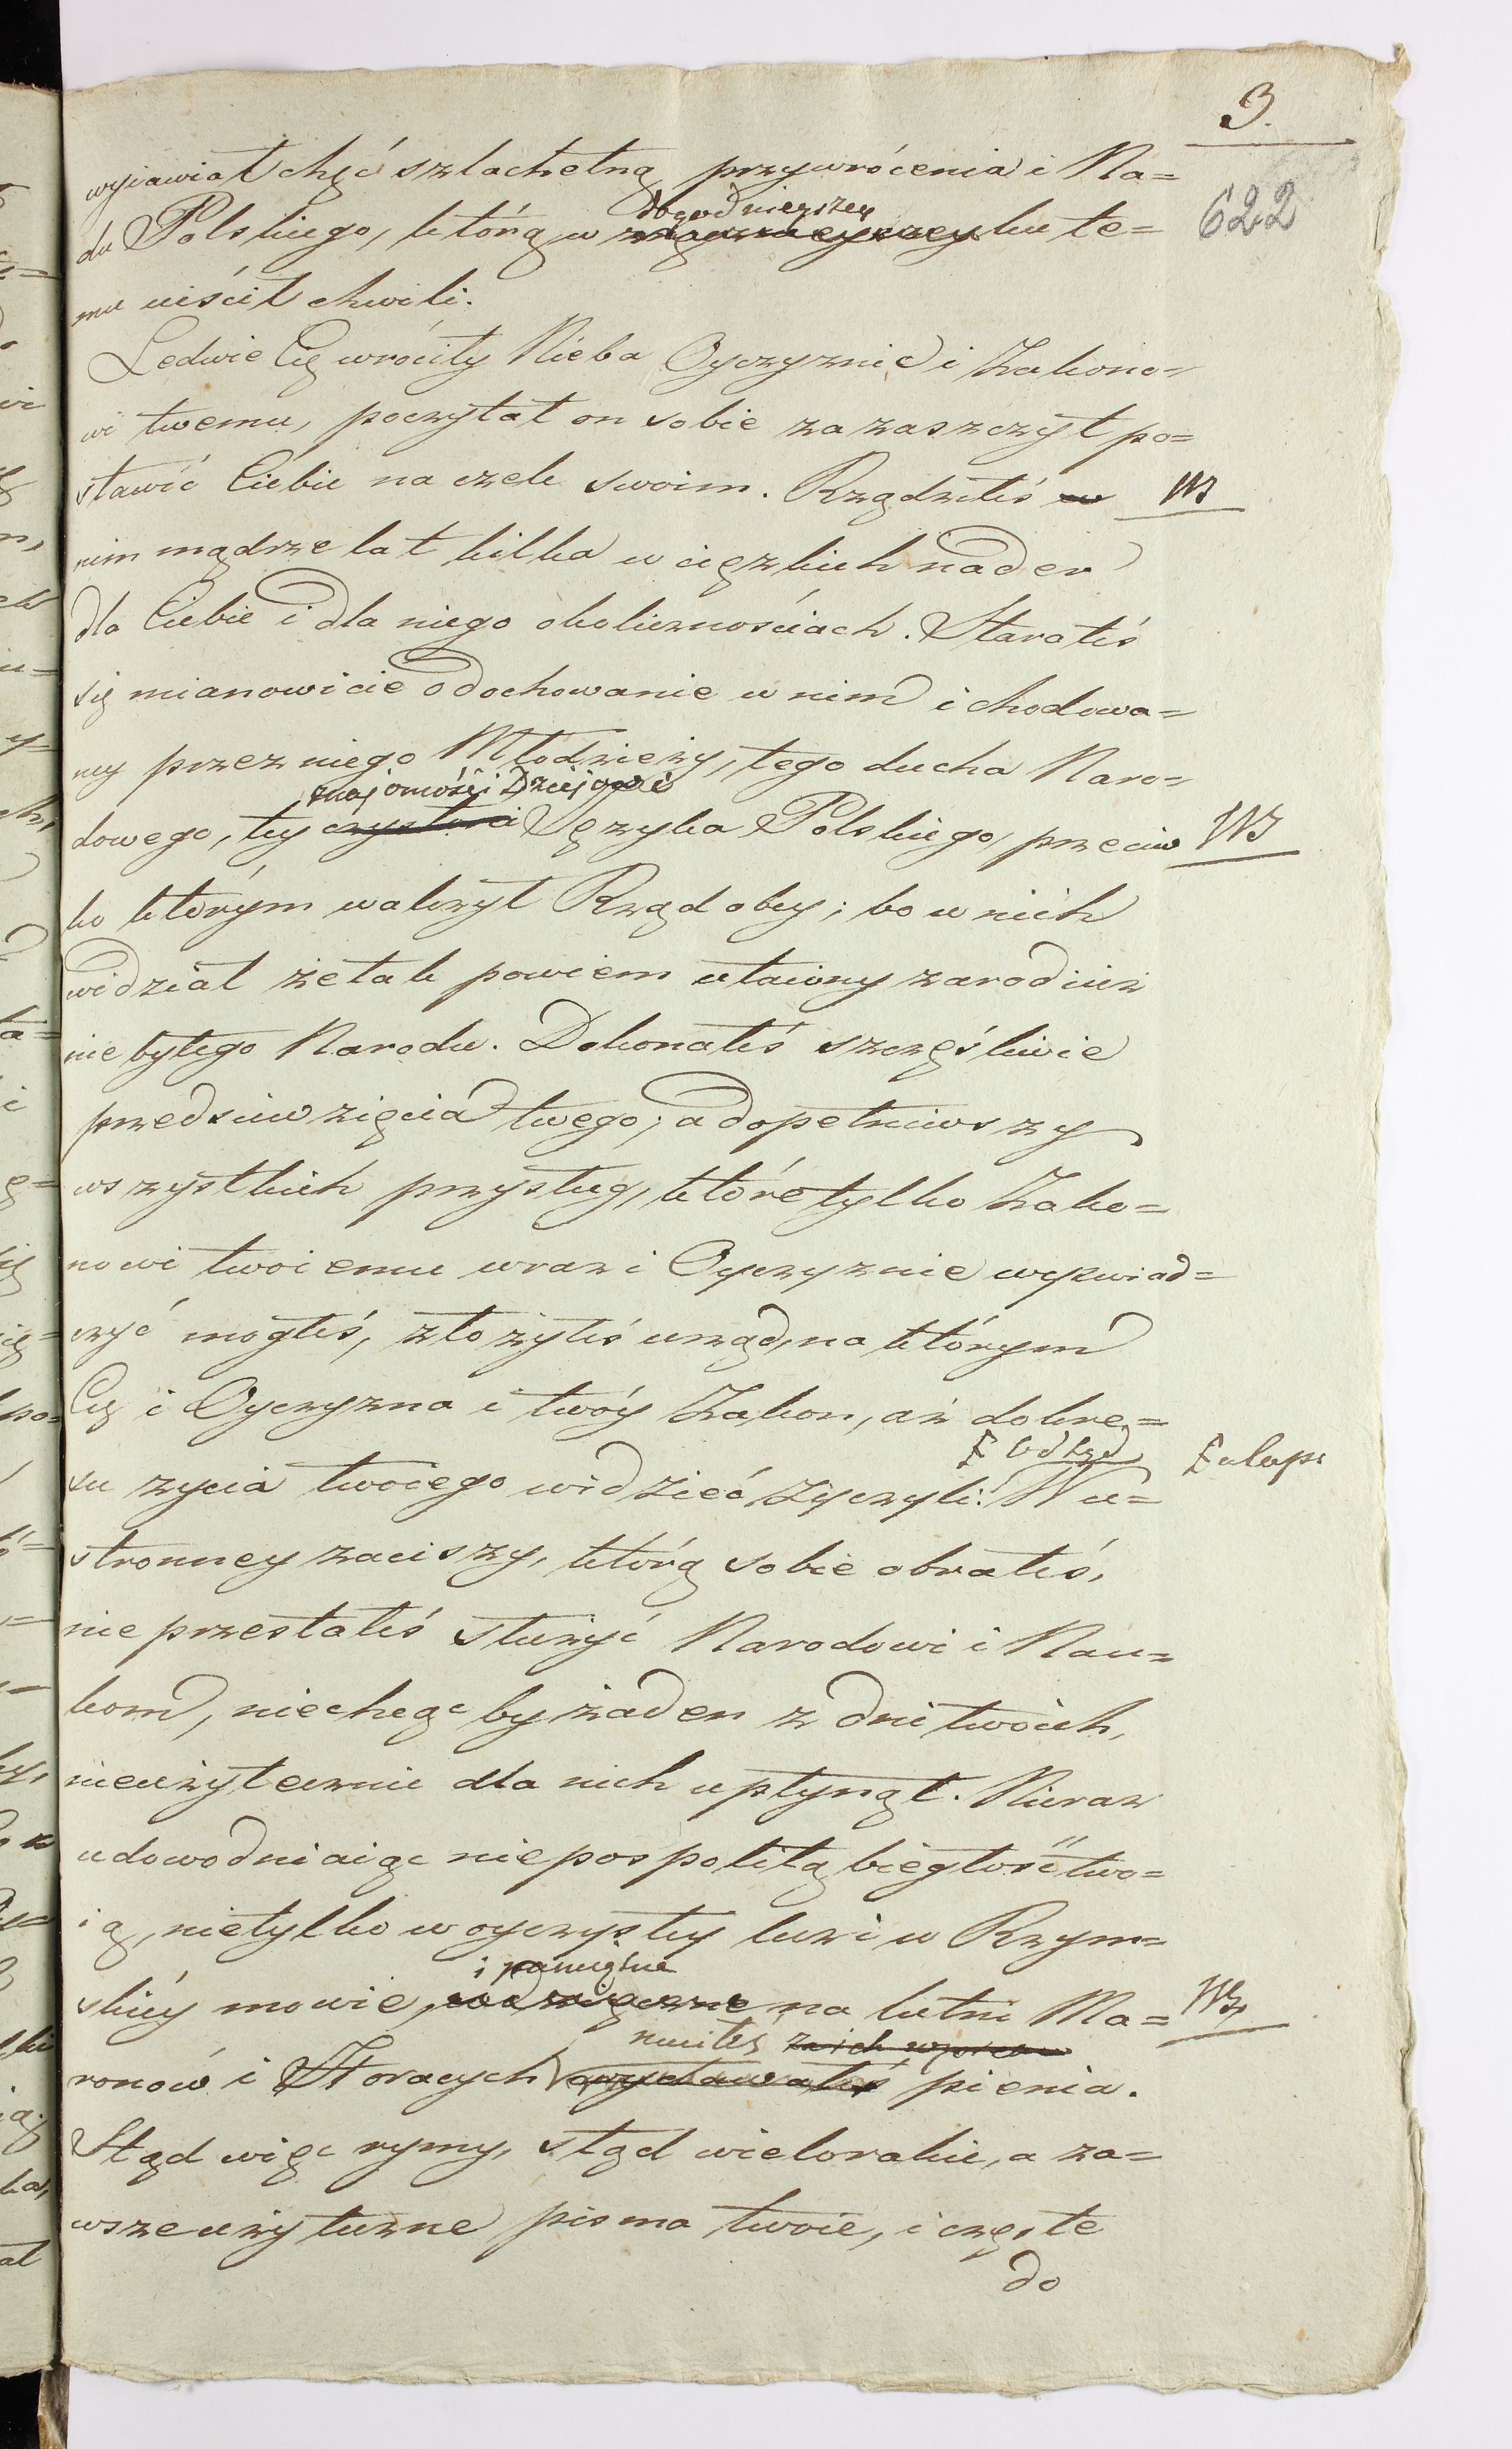 3.
622
wyiawiał chęć szlachetną przywrócenia i Na=
dogodnieyszey
du Polskiego, którą w ku te=
mu uiścił chwili.
Ledwie Cię wróciły Nieba Oyczyznie i Zakono=
wi twemu, poczytał on sobie za zaszczyt po=
stawić Ciebie na czele swoim. Rządziłeś w
nim mądrze lat kilka w cięzkich nader
dla Ciebie i dla niego okolicznościach. Starałeś
się mianowicie o dochowanie w nim i chodowa=
ney przez niego Młodzieży, tego ducha Naro=
znajomości Dziejów i
dowego, tey czystości Języka Polskiego, przeciw
ko którym walczył Rząd obcy; bo w nich
widział że tak powiem utaiony zarodziez
niebyłego Narodu. Dokonałeś szczęśliwie
przedsiewzięcia twego; a dopełniwszy
wszystkich przysług, które tylko Zako=
nowi twoiemu wraz i Oyczyznie wyswiad=
czyć mogłeś, złożyłeś urząd, na którym
Cię i Oyczyzna i twóy Zakon, aż do kre=
Odtąd
su zycia twoiego widzieć życzyli. W u=
stronney zaciszy, którą sobie obrałeś,
nie przestałeś służyć Narodowi i Nau=
kom, niechcąc by żaden z dni twoich,
nieużytecznie dla nich upłynął. Nieraz
udowodniaiąc niepospolitą biegłość two=
ią, nietylko w oyczystey lecz i w Rzym=
i pamiętne
skiéy mowie, na lutni Ma=
nuciłeś za ich wzorem
ronów i Horacych pienia.
Stąd więc rymy, stąd wielorakie, a za=
wsze użyteczne pisma twoie, i częste
do